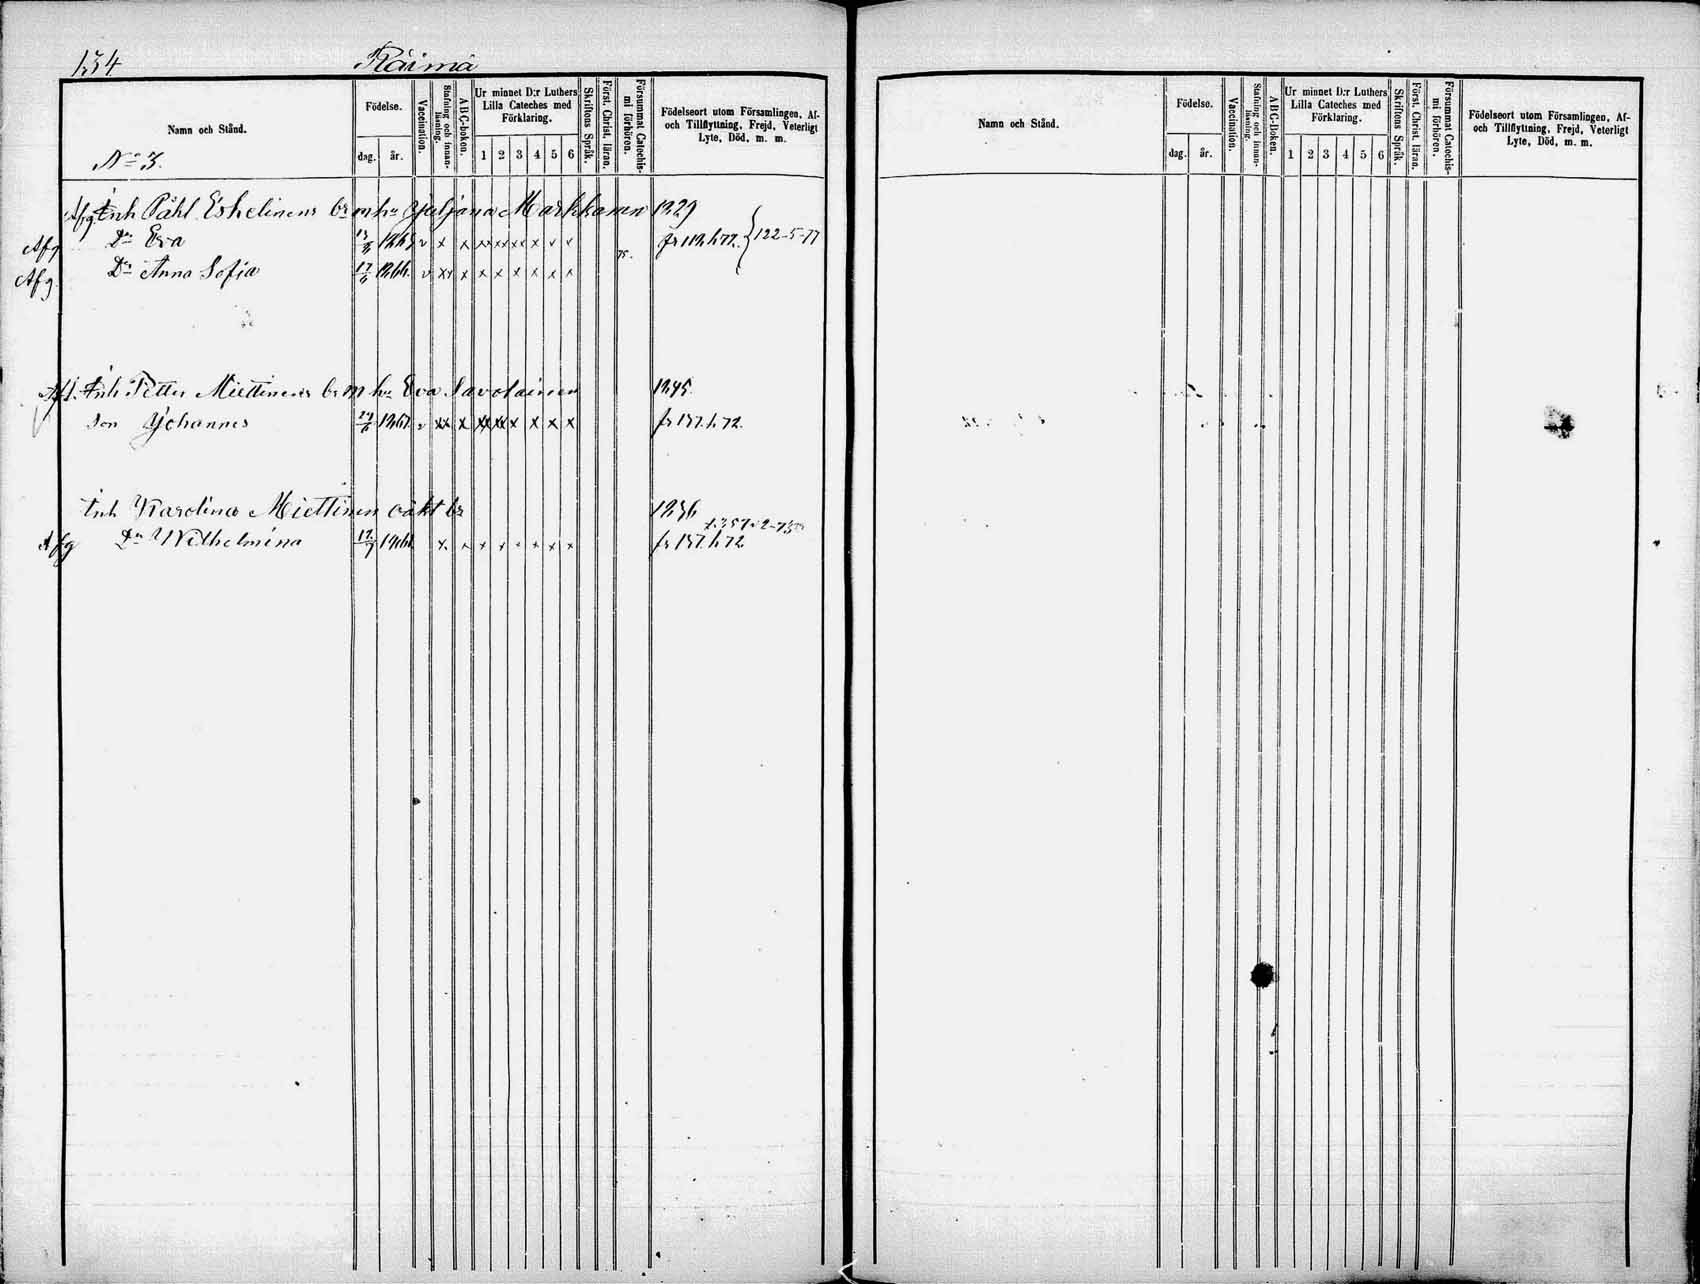 154 Räimä
Namn och Stånd. Födelse. dag. år. Vaccination. Stafning och innan-läsning. A B C-boken. Ur minnet D:r Luthers Lilla Cateches med Förklaring. 1 2 3 4 5 6 Skriftens Språk. Först. Christ. läran. Försummat Catechis-mi förhören. Födelseort utom Församlingen, Af- och Tillflyttning, Frejd, Veterligt Lyte, Död, m. m.
No 3.
Afg. Inh Påhl Eskelinens br m hu Juljana Markkanen 1829
Afg Dr Eva fr 112. h 72. 122-5-77
75.
Afg. Dr Anna Sofia 17/6 1866. v xx x x x x x x x
Inh Petter Miettinens br m hu Eva Savolainen 1845.
Son Johannes fr 157. h 72.
Inh Karolina Miettinen oäkt br 1836
Afg Dr Wilhelmina fr 157. h 72
Namn och Stånd. Födelse. dag. år. Vaccination. Stafning och innan-läsning. A B C-Boken. Ur minnet D:r Luthers Lilla Cateches med Förklaring. 1 2 3 4 5 6 Skriftens Språk. Först. Christ. läran. Försummat Catechis-mi förhören. Födelseort utom Församlingen, Af- och Tillflyttning, Frejd, Veterligt Lyte, Död, m. m.